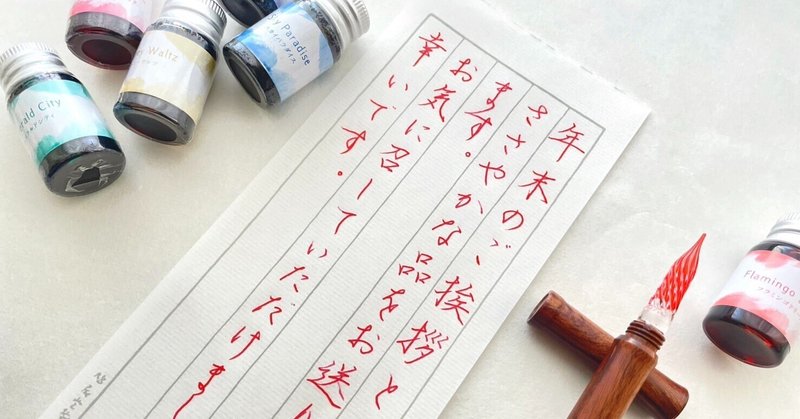 年末のご挨拶と
ささやかな品をお送り
ます。
お気に召していただけまし
幸いです。
Paradise
Waltz
City
Flamingo